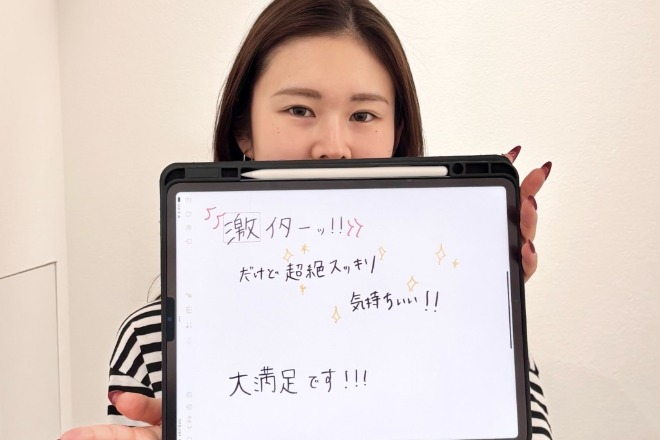 激イターッ!!
だけど超絶スッキリ
気持ちいい!!
大満足です!!!